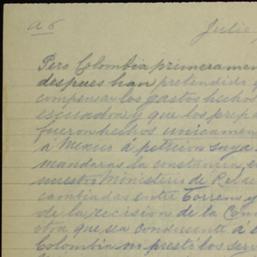 a 6
Julio
Pero Colombia primeramen
despues han pretendido q
compensar los gastos hechos
escuadra y que los prepa
fueron hechos unicamen
a Mexico á peticion suya
mandaras la constancia e
nuestro Ministerio de Relac
cambiadas entre Torrens y
de la decision de la Con
otra que sea conducente á
Colombia no prestó los ser